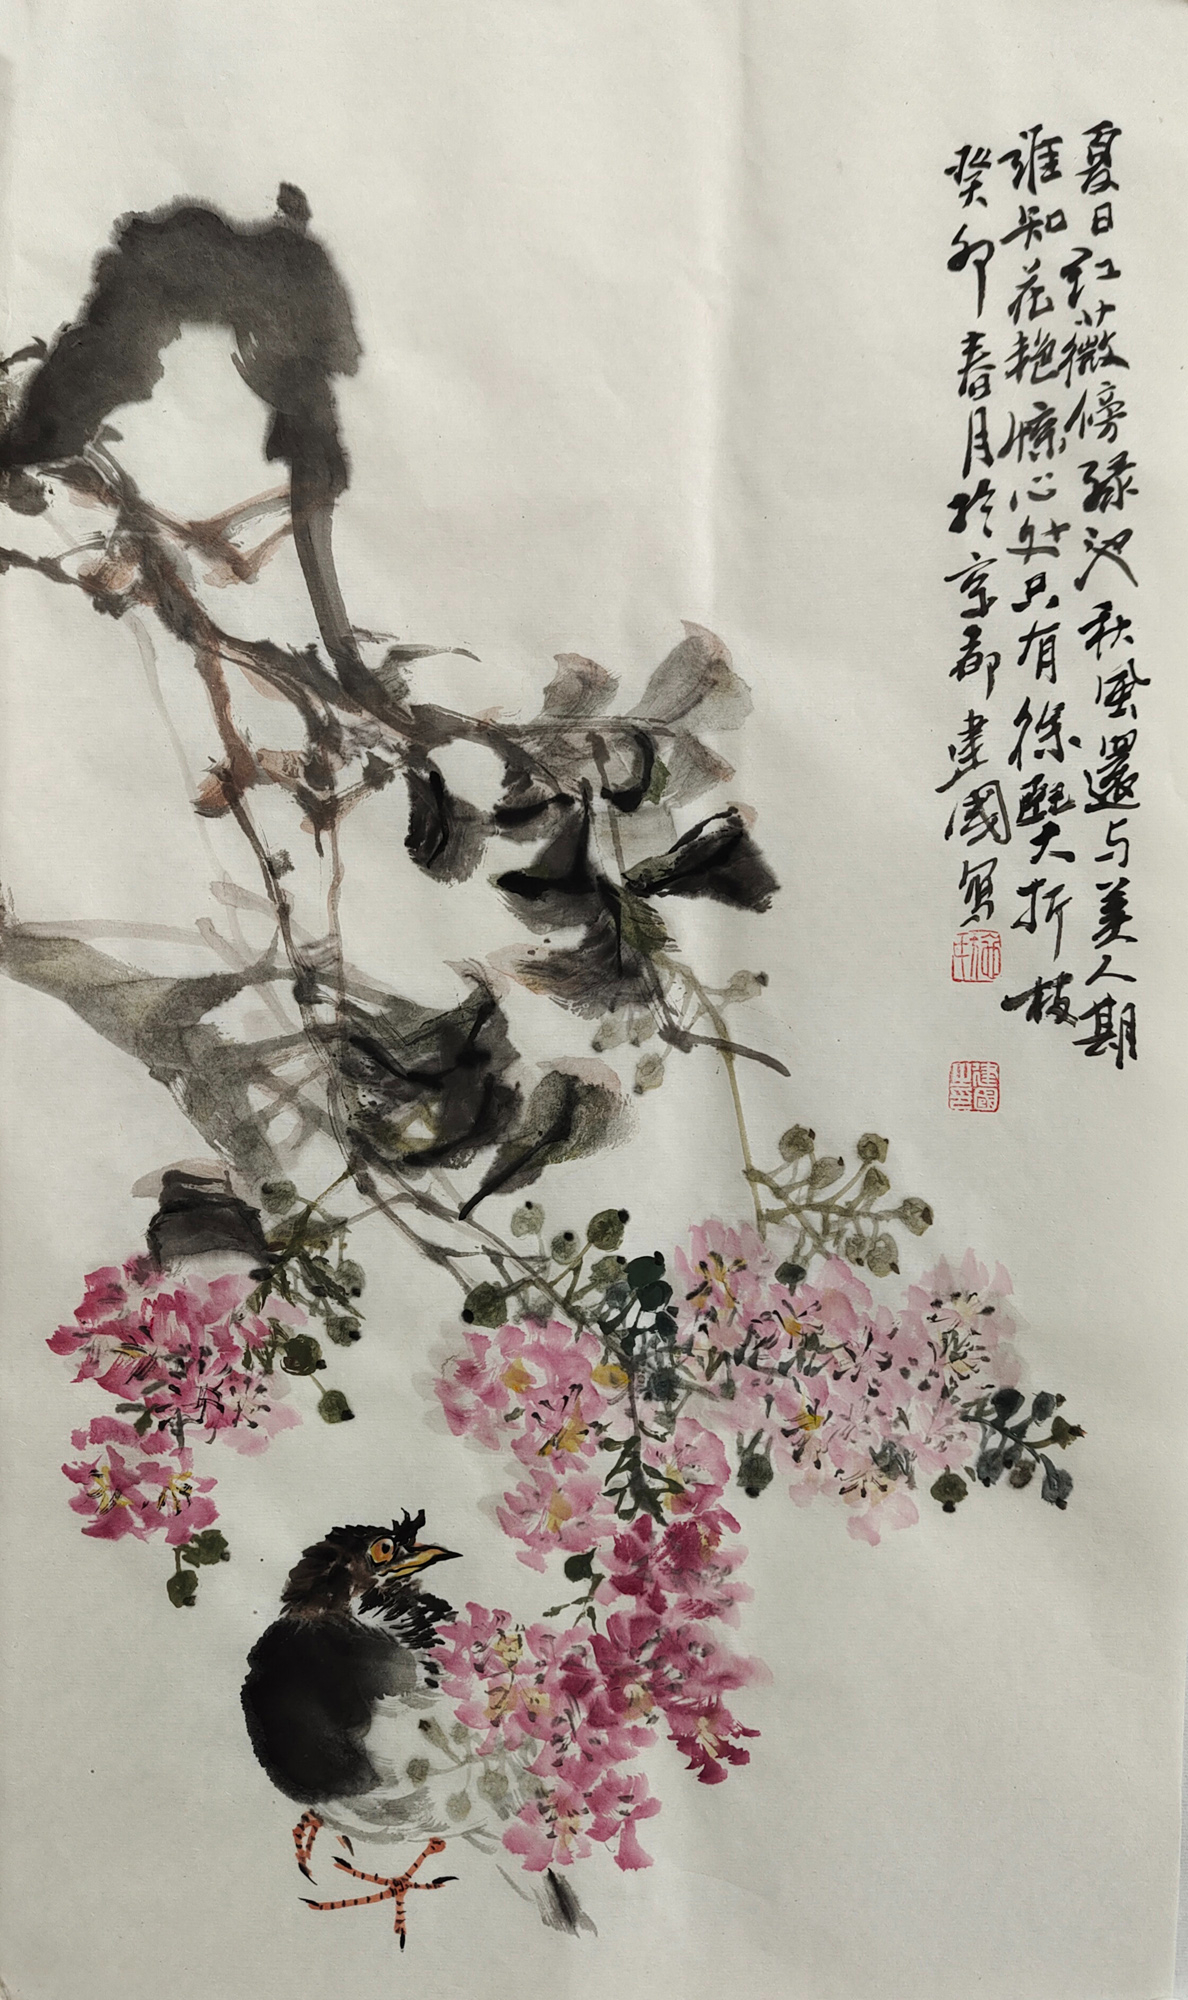 夏日红薇傍绿池秋風還与美人期
谁知花艳懔心处只有徐熙大折枝
癸卯春月於京都建國写
建國之印